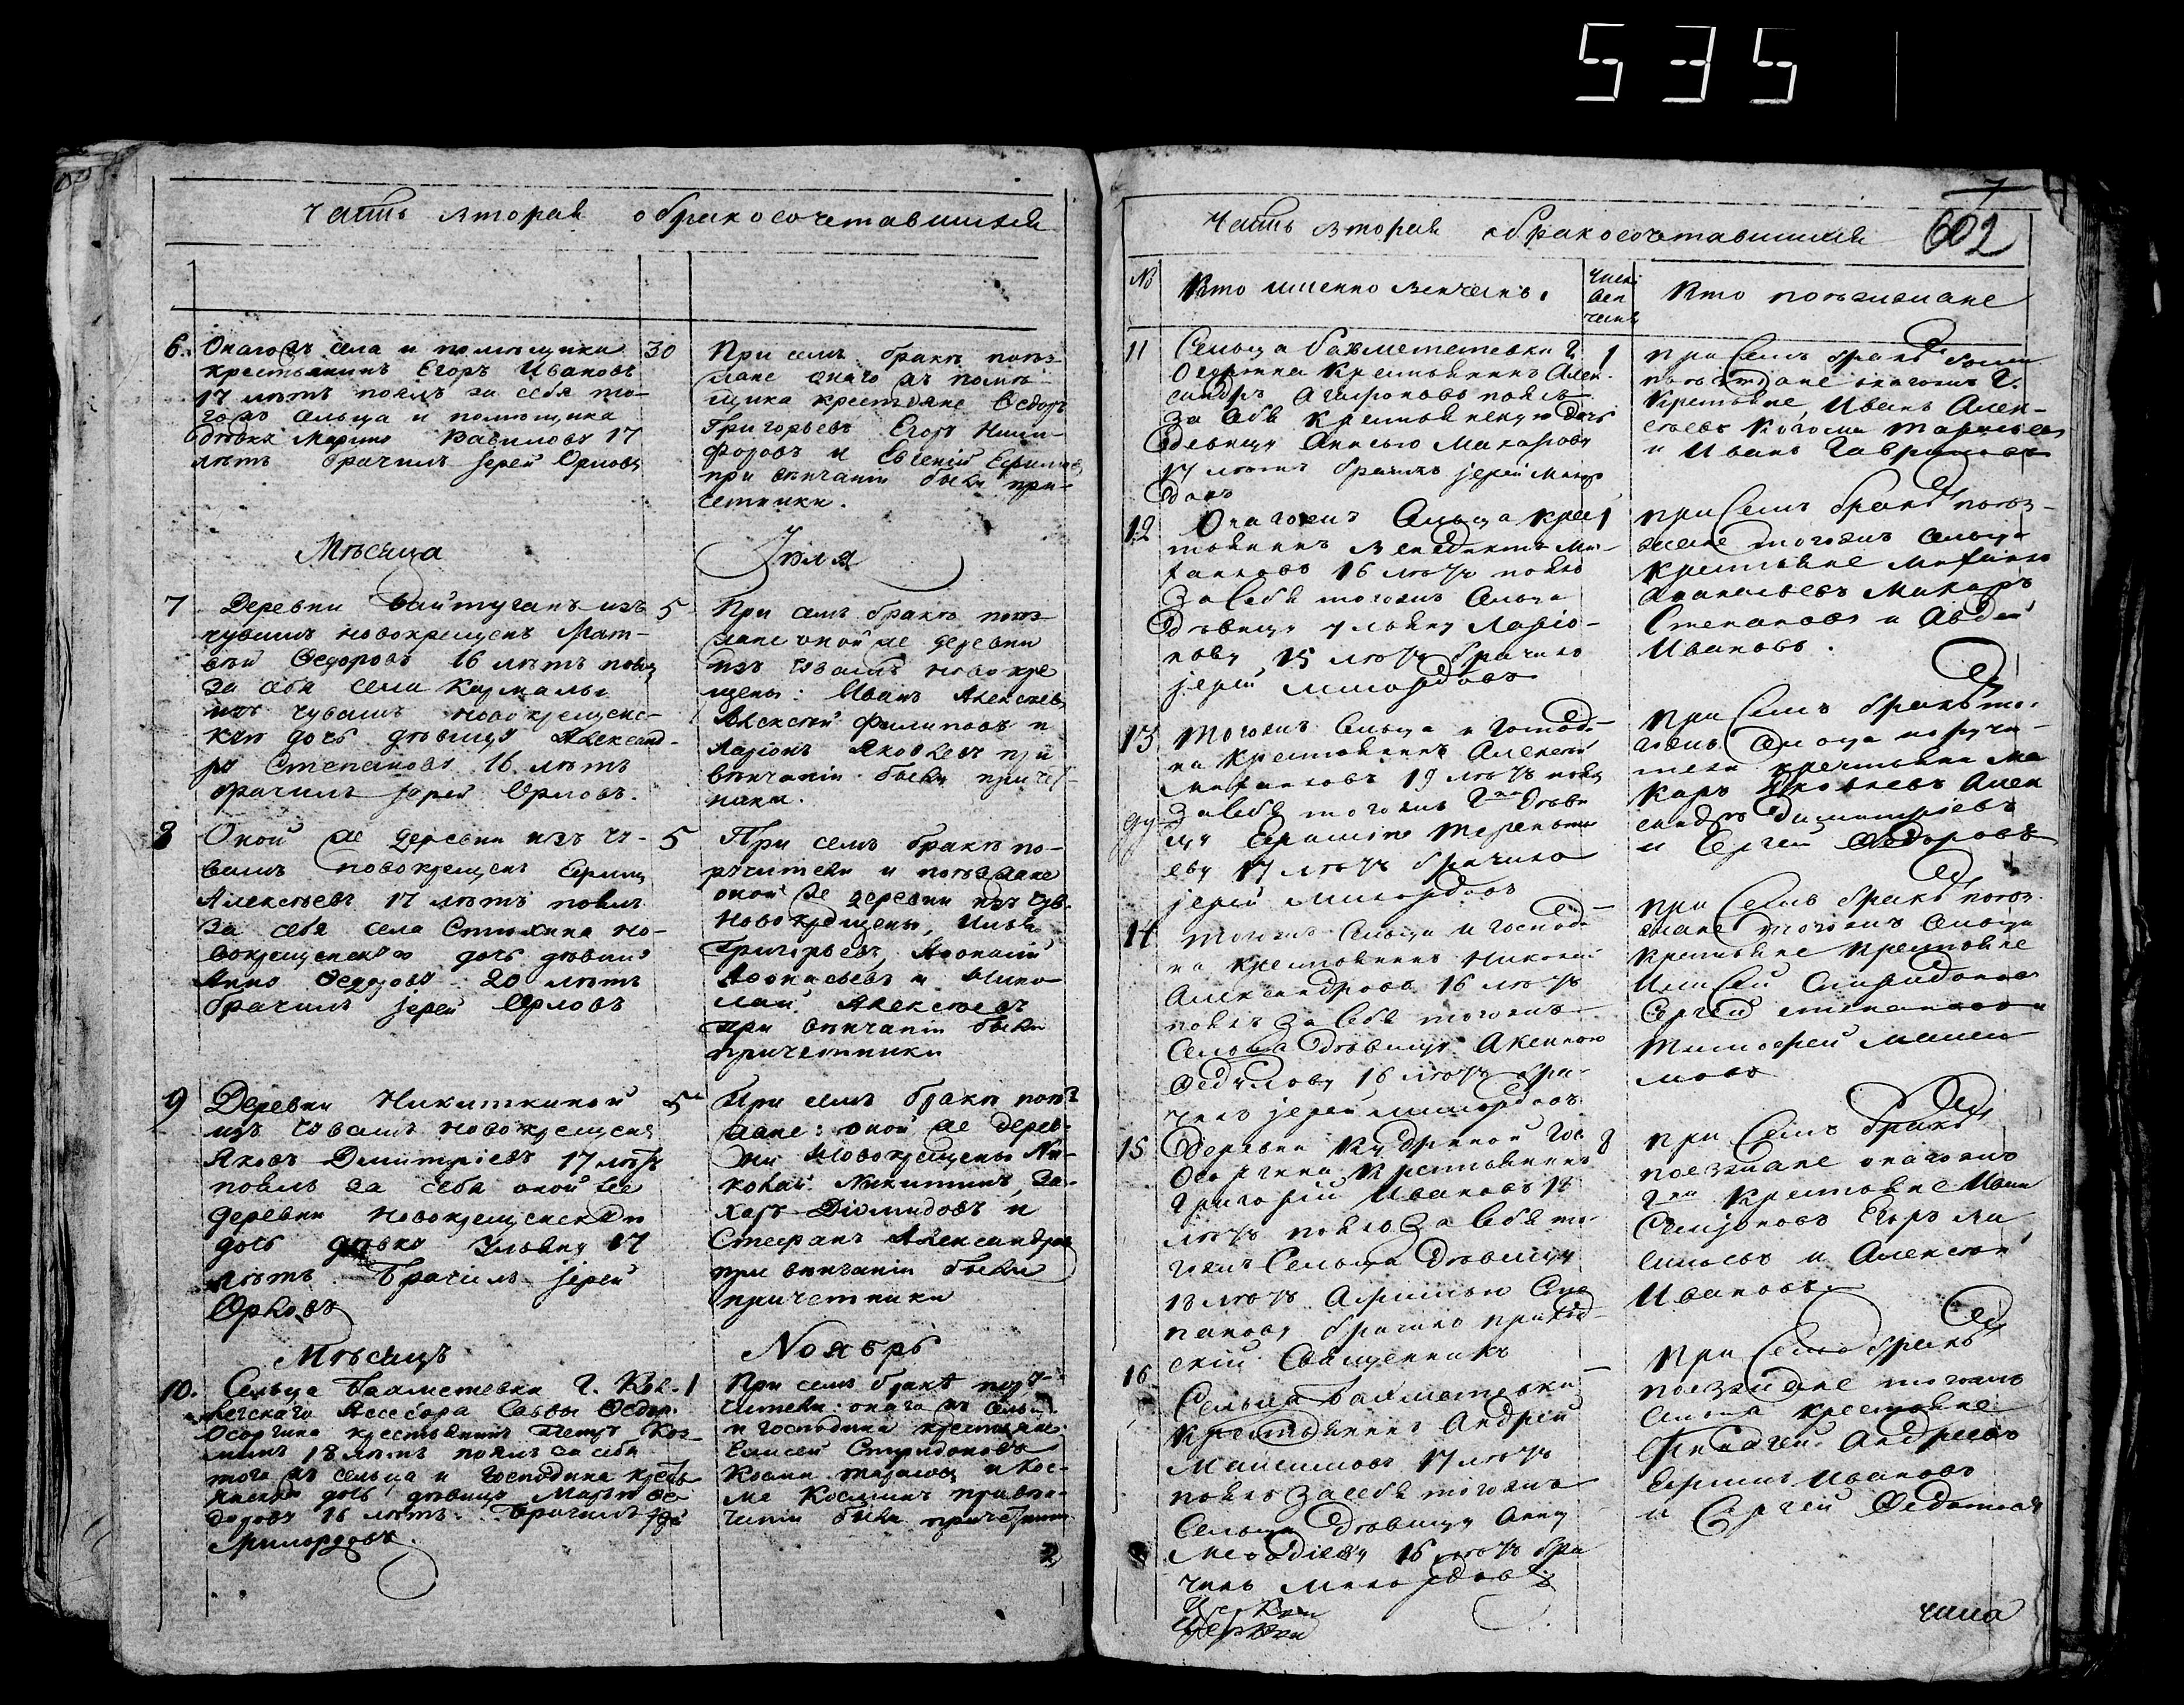 535
часть вторая о бракосочетавшихся
6. Онагожъ села и помѣщика 30
крестьянинъ Егоръ Ивановъ
17 лѣтъ поялъ за себя то-
гожъ сельца и помѣщика
дѣвку Марину 17
лѣтъ брачилъ іерей Орловъ
При семъ бракѣ поѣз-
жане онаго жъ помѣ-
щика крестьяне Ѳедоръ
Григорьевъ Егоръ Ники-
форовъ и Евгеній Ефимовъ
при вѣнчаніи были при-
четники.
Мѣсяца Іюля
7 Деревни Байтуганъ изъ 5
чувашъ новокрещенъ Мат-
вѣй Ѳедоровъ 16 лѣтъ поялъ
за себя села Кармалы
изъ чувашъ новокрещенс-
кую дочь дѣвицу Александ-
ру Степанову 16 лѣтъ
брачилъ іерей Орловъ.
При семъ бракѣ поѣз-
жане оной же деревни
изъ чувашъ новокре
щены: Иванъ Алексѣевъ
Алексѣй Филиповъ и
Ларіонъ Яковлевъ при
вѣнчаніи были причет-
ники.
8 Оной же деревни изъ чу- 5
вашъ новокрещенъ
Алексѣевъ 17 лѣтъ поялъ
за себя села Стюхина но-
вокрещенскую дочь дѣвицу
Анну Ѳедорову 20 лѣтъ
брачилъ іерей Орловъ
При семъ бракѣ по-
ручители и поѣзжане
оной же деревни изъ чув.
новокрещены, Илья
Григорьевъ, Аѳонасій
Аѳонасьевъ и Нико-
лай Алексѣевъ
при вѣнчаніи были
причетники
9 Деревни Никиткиной 5
изъ чувашъ новокрещенъ
Яковъ Димитріевъ 17 лѣтъ
поялъ за себя оной же
деревни новокрещенскую
дочь дѣвку Ульяну 17
лѣтъ. Брачилъ іерей
Орловъ
При семъ бракѣ поѣз
жане: оной же дерев-
ни новокрещены Ни-
колай Никитинъ, За-
харъ Діомидовъ и
Стефанъ Александровъ
при вѣнчаніи были
причетники
Мѣсяцъ Ноябрь
10. Сельца Бахметевки Г. Кол- 1
лежскаго Асесора Саввы Ѳедор.
Осоргина крестьянинъ Петръ Коз-
минъ 18 лѣтъ поялъ за себя
того жъ сельца и Господина кресть
янскую дочь дѣвицу Марѳу Ѳе
дорову 16 лѣтъ. Брачилъ іерей
Милордовъ.
При семъ бракѣ пору-
чители: онаго жъ сельца
и господина крестьяне
Елисей Спиридоновъ
Козма Тарасовъ и Кос-
ма Косминъ при вѣн-
чаніи были причетники
7
602
Часть вторая о бракосочетавшихся
№ Кто именно венчанъ. Число вен чанъ Кто поѣзжане
11 Сельца Бахметевки Г. 1
Осоргина крестьянинъ Алек-
сандръ Агафоновъ поялъ
за себя крестьянскую дочь
девицу Анисью Макарову
17 лѣтъ брачилъ іерей Милор
довъ
при семъ бракѣ были
поѣзжане онагожъ Г.
крестьяне, Иванъ Алек-
сѣевъ Козма Тарасовъ
и Иванъ Гавриловъ
12 Онагожъ сельца крес 1
тьянинъ Венедиктъ Ми-
хайловъ 16 лѣтъ поялъ
за себя тогожъ сельца
дѣвицу Ульяну Ларіо-
нову 15 лѣтъ брачилъ
іерей Милордовъ
при семъ бракѣ поѣз-
жане тогожъ сельца
крестьяне Михайло
Аѳанасьевъ Макаръ
Степановъ и Авдей
Ивановъ.
13 Тогожъ сельца и господи-
на крестьянинъ Алексѣй
Михайловъ 19 лѣтъ поялъ
за себя тогожъ Г-на дѣви
цу Терентьи
еву 17 лѣтъ брачилъ
іерей Милордовъ
при семъ бракѣ то-
гожъ сельца поручи-
тели крестьяне Ма
каръ Яковлевъ Алек
сандръ Димитріевъ
и Сергей Ѳедоровъ
14 Тогожъ сельца и господи-
на крестьянинъ Николай
Александровъ 16 лѣтъ
поялъ за себя тогожъ
сельца дѣвицу Аксинью
Ѳедулову 16 лѣтъ бра-
чилъ іерей Милордовъ
при семъ бракѣ поѣз
жане тогожъ сельца
крестьяне крестьяне
Елисей Спиридоновъ
Сергей Степановъ и
Тимофей Макси
мовъ
15 Деревни Кудриной гос 8
Осоргина крестьянинъ
Григорій Ивановъ 18
лѣтъ поялъ за себя то-
гожъ сельца дѣвицу
18 лѣтъ Афимью Сте
панову брачилъ приход-
скій священникъ
при семъ бракѣ
поезжане онагожъ
Г-на крестьяне Иванъ
Егоръ Ма
и Алексѣй
Ивановъ
16 Сельца Бахметевки
крестьянинъ Андрей
Максимовъ 17 лѣтъ
поялъ за себя тогожъ
сельца дѣвицу Анну
Меѳодіеву 16 лѣтъ бра
чилъ Милордовъ
при семъ бракѣ
поезжане тогожъ
сельца крестьяне
Андреевъ
Ефимъ Ивановъ
и Сергей Ѳедотовъ
Церкви
Церкви